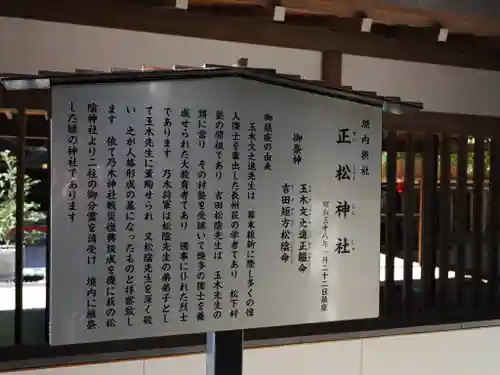 境内摂社
正松神社
せいしょうじんじゃ
昭和三十八年一月二十二日鎮座
御祭神
玉木文之進正韞命
吉田矩方松陰命
御鎮座の由来
玉木文之進先生は 幕末維新に際し多くの偉
人傑士を輩出した長州萩の学者であり 松下村
塾の開祖であり 吉田松陰先生は 玉木先生の
甥に當り その村塾を受継いで幾多の國士を育
成せられた大教育者であり 國事に仆れた烈士
であります 乃木将軍は松陰先生の弟弟子とし
て玉木先生に薫陶せられ 又松陰先生を深く敬
い 之が人格形成の基になつたものと拝察致し
ます 依て乃木神社戦災復興落成を機に萩の松
陰神社より二柱の御分霊を請受け 境内に鎮祭
した縁の神社であります